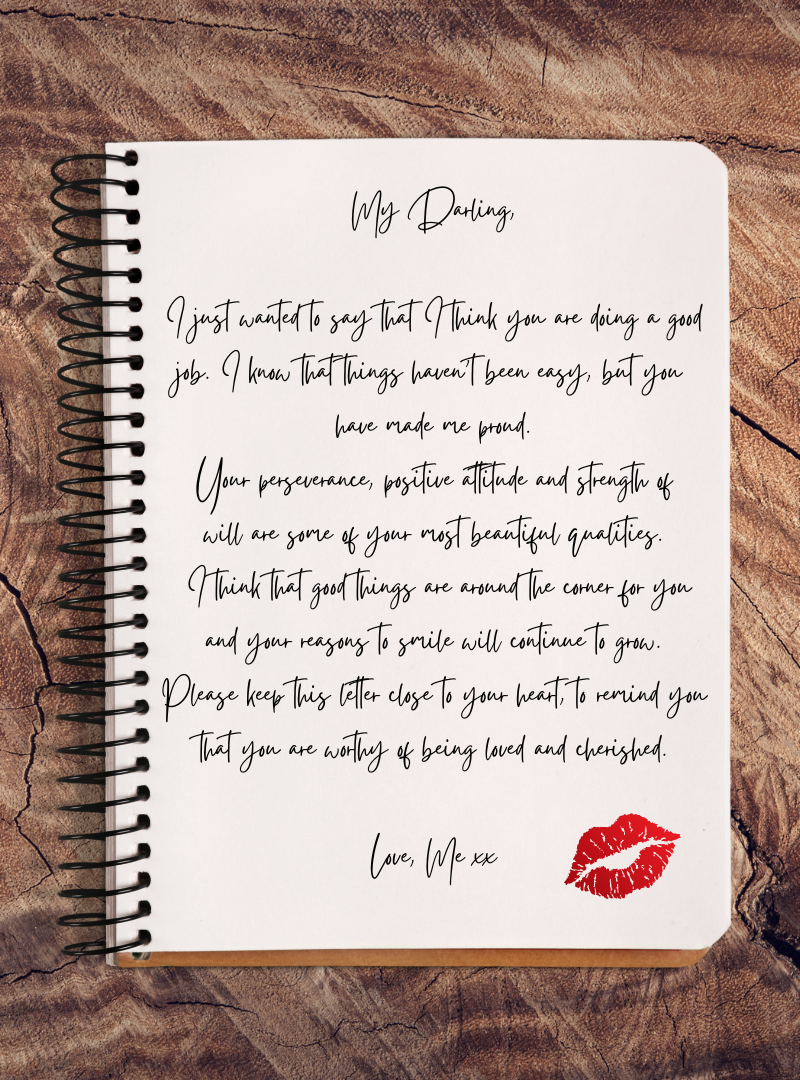 My Darling,
I just wanted to say that I think you are doing a good
job. I know that things haven't been easy, but you
have made me proud.
Your perseverance, positive attitude and strength of
will are some of your most beautiful qualities.
I think that good things are around the corner for you
and your reasons to smile will continue to grow.
Please keep this letter close to your heart, to remind you
that you are worthy of being loved and cherished.
Love, Me xx